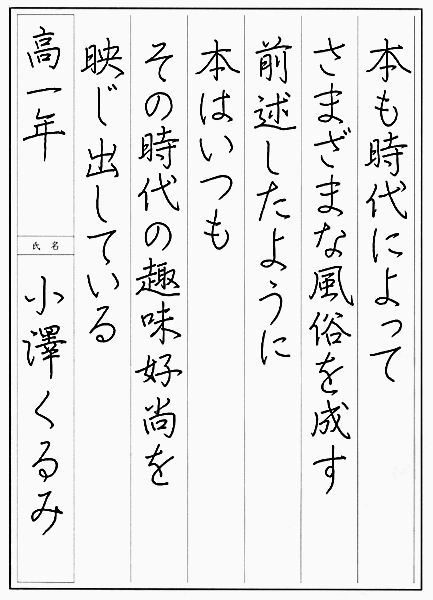 本も時代によって
さまざまな風俗を成す
前述したように
本はいつも
その時代の趣味好尚を
映じ出している
高一年
氏名
小澤くるみ